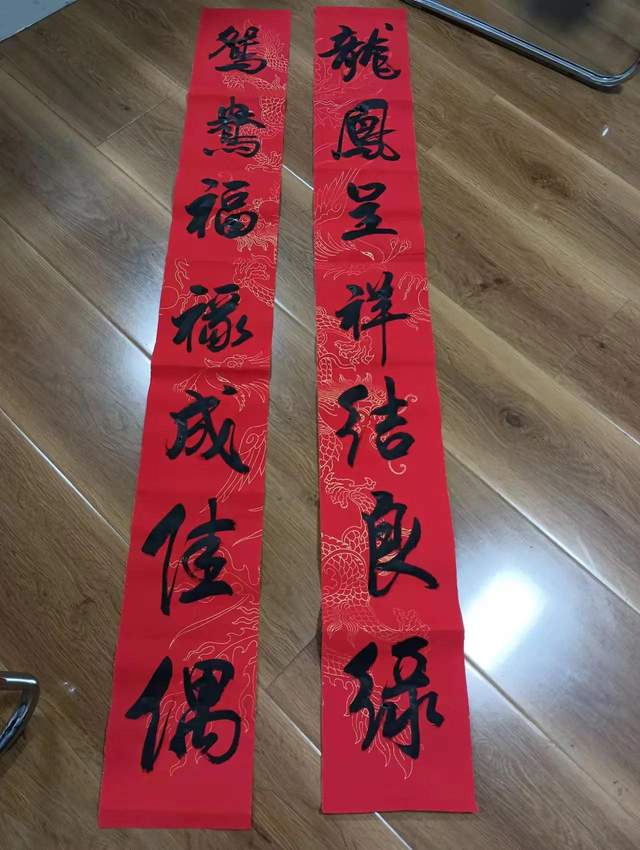 龍鳳呈祥結良緣
鴛鴦福祿成佳偶